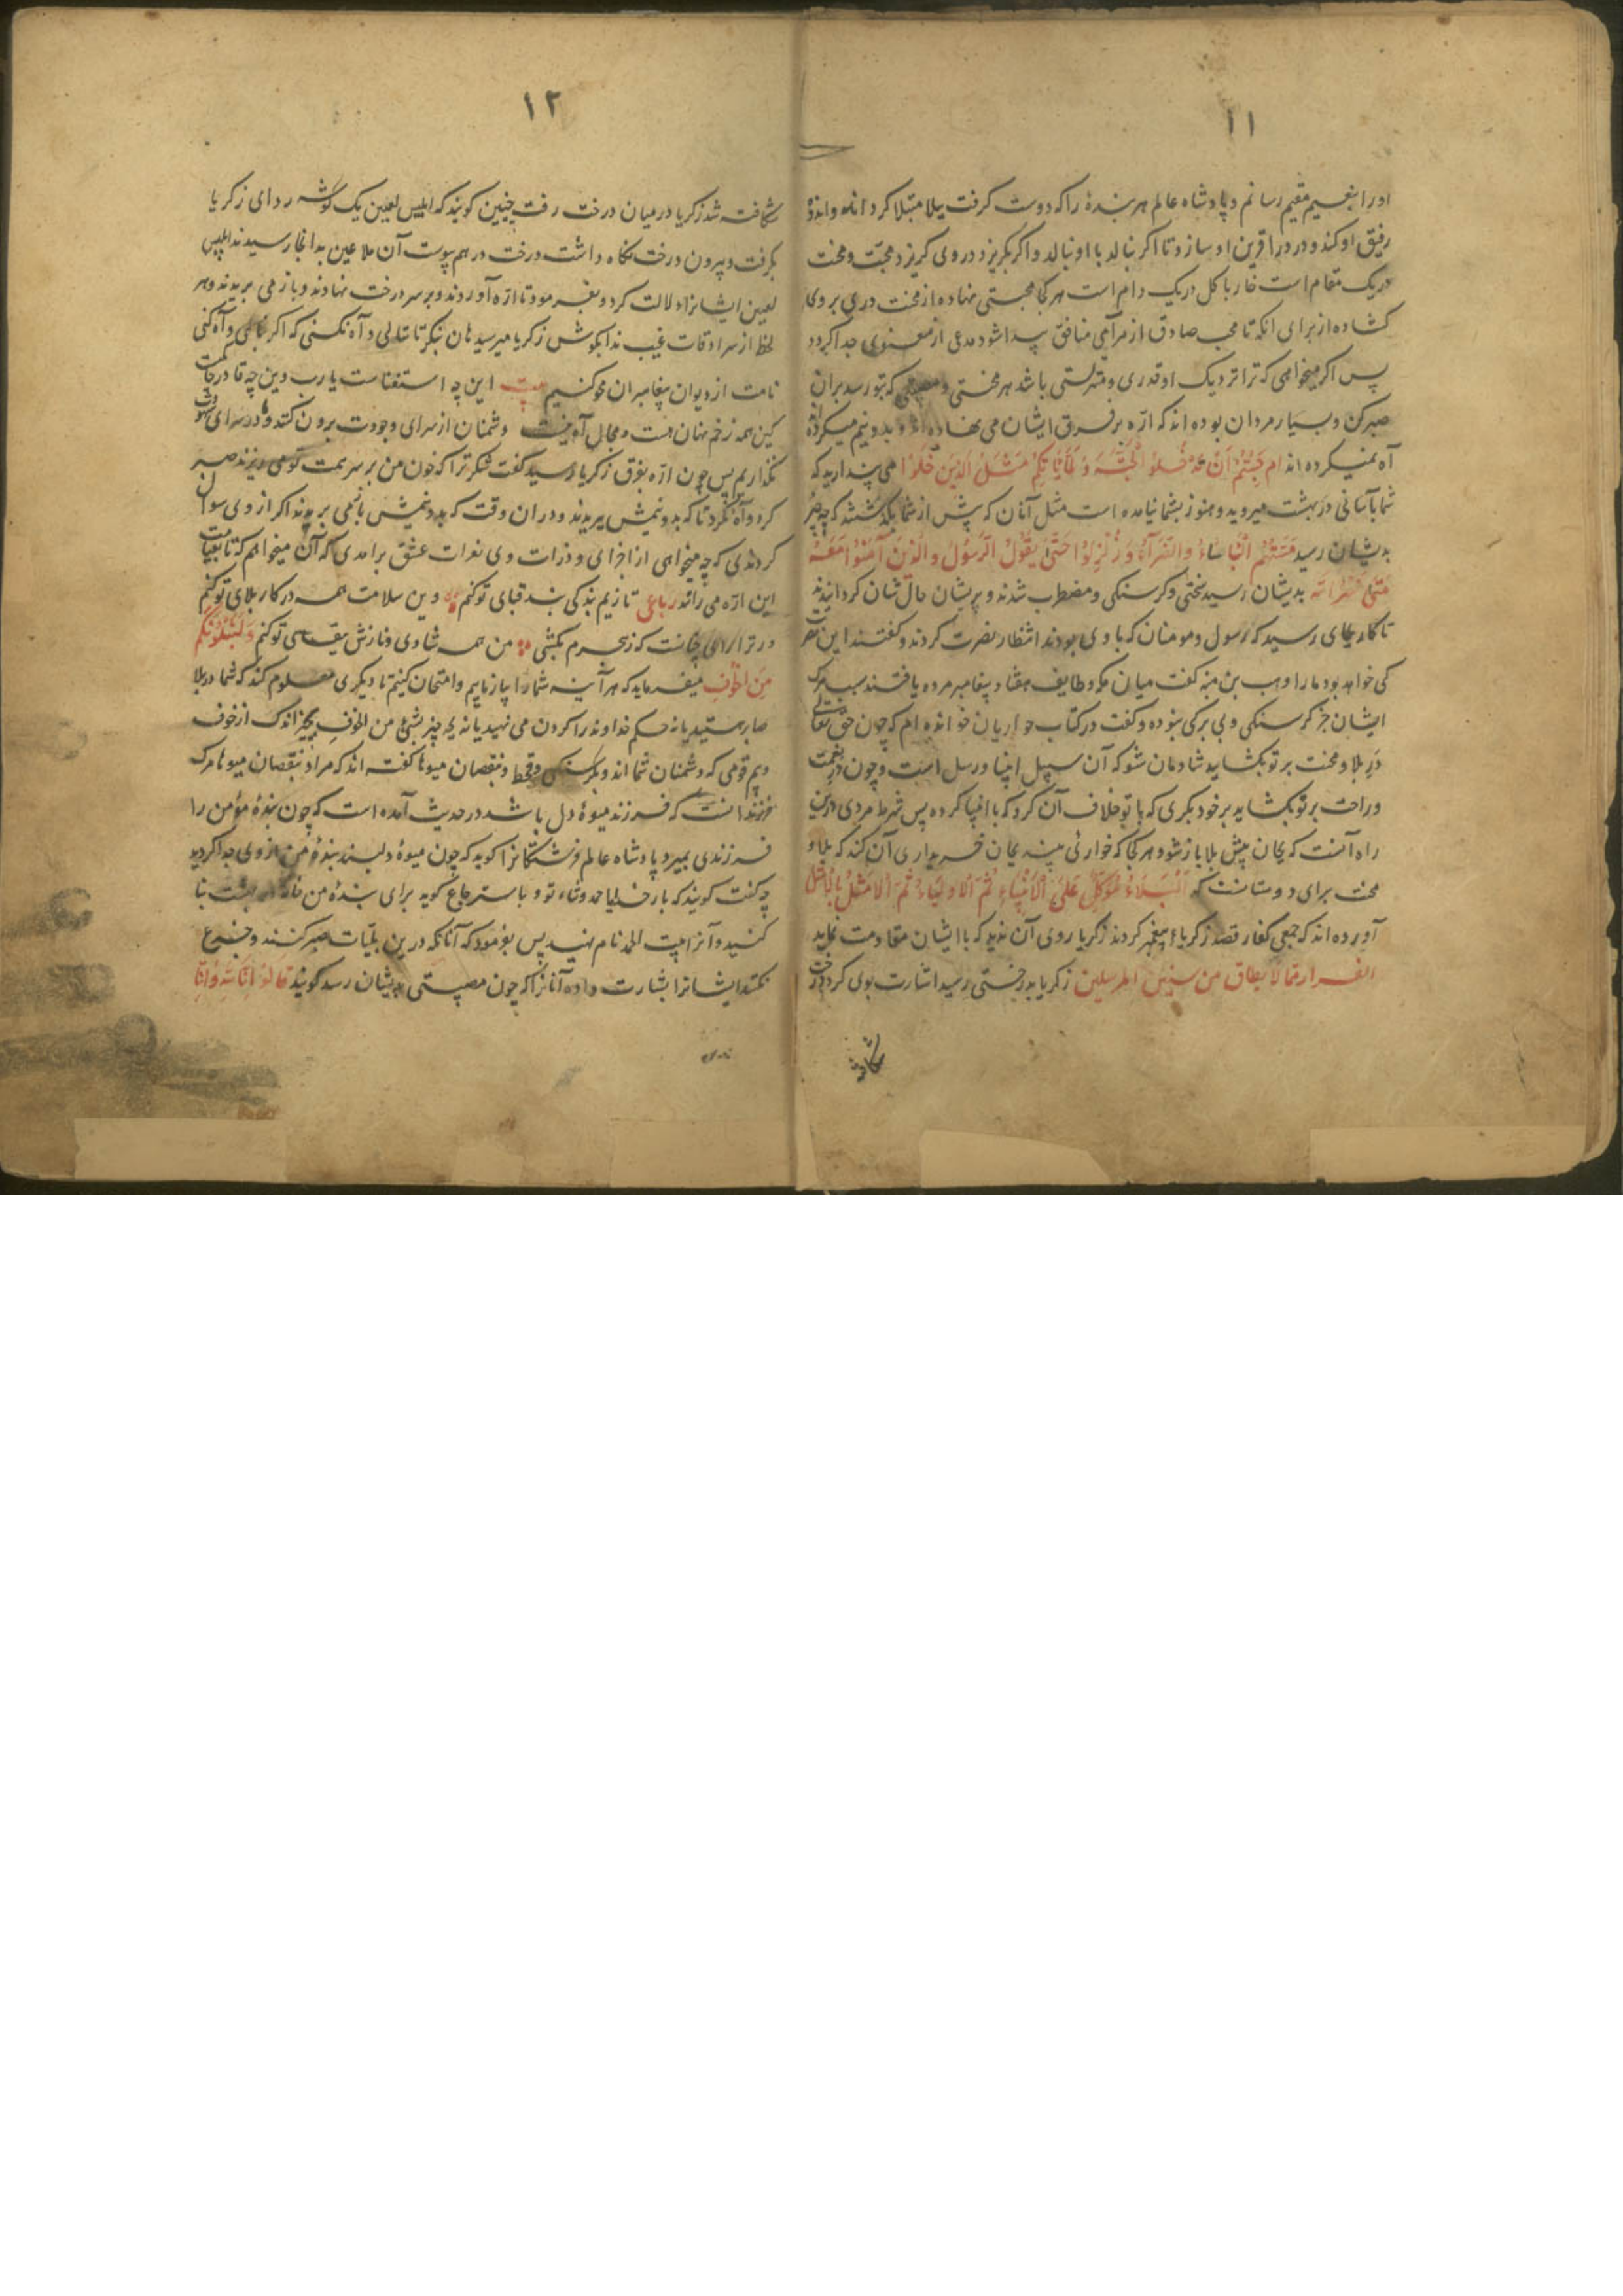 ۱۱
او را بنعیم مقیم رسانم و پادشاه عالم هر بندهٔ را که دوست گرفت ببلا مبتلا گرداند و اندوه
رفیق او کند و درد را قرین او سازد تا اگر بنالد با او نالد و اگر بگریزد در وی گریزد محبت و محنت
در یک مقام است خار با کل در یک دام است هر کجا محبتی نهاده از محنت دری بر وی
کشاده از برای انکه تا محب صادق از مرآهی منافق پیدا شود مدعی از معنوی جدا کردد
پس اکر میخواهی که ترا نزدیک او قدری و منزلتی باشد هر محنتی و مصیبتی که بتو رسد بران
صبر کن و بسیار مردان بوده اند که ارّه بر فرق ایشان می نهاده اند و بدو نیم میکرده اند
آه نمیکرده اند ام حسبتم أن تدخلوا الجنة ولما یأتکم مثل الذین خلوا می پندارید که
شما بآسانی در بهشت میروید و هنوز بشما نیامده است مثل آنان که پیش از شما بگذشتند که چه چیز
بدیشان رسید مستهم البأساء والضرآء وزلزلوا حتی یقول الرسول والذین آمنوا معه
متی نصر الله بدیشان رسید سختی و کرسنکی و مضطرب شدند و پریشان حال شان کردانیدند
تا کار بجای رسید که رسول و مومنان که با وی بودند انتظار نصرت کردند و کفتند این نصرت
کی خواهد بود ما را وهب بن منبه کفت میان مکه و طایف هفتاد پیغامبر مرده یافتند سبب مرک
ایشان جز کرسنکی و بی برکی نبوده و کفت در کتاب حواریان خوانده ام که چون حق تعالی
در بلا و محنت بر تو بکشاید شادمان شو که آن سبیل انبیا و رسل است و چون در نعمت
و راحت بر تو بکشاید بر خود بکری که با تو خلاف آن کرد که با انبیا کرده پس شرط مردی درین
راه آنست که بجان پیش بلا باز شود هر کجا که خواری بیند بجان خریداری آن کند که بلا و
محنت برای دوستانست که البلاء موکل علی الانبیاء ثم الاولیاء ثم الامثل بالامثل
آورده اند که جمعی کفار قصد زکریاء پیغمبر کردند زکریا روی آن ندید که با ایشان مقاومت نماید
الفرار مما لا یطاق من سنن المرسلین زکریا بدرختی رسید اشارت بوی کرد درخت
شکافته
۱۲
شکافته شد زکریا در میان درخت رفت چنین کویند که ابلیس لعین یک کوشه ردای زکریا
بکرفت و بیرون درخت نکاه داشت درخت در هم پیوست آن ملاعین بدانجا رسیدند ابلیس
لعین ایشانرا دلالت کرد و بفرمود تا ارّه آوردند و بر سر درخت نهادند و باز می بریدند و هر
لحظ از سرادقات غیب ندا بکوش زکریا میرسید هان بنکر تا ننالی و آه نکنی که اکر بنالی و آه کنی
نامت از دیوان پیغامبران محو کنیم بیت این چه استغناست یا رب وین چه قادر حکمت
کین همه زخم نهان هست و مجال آه نیست دشمنان از سرای وجودت برون کنند و در سرای
نگذاریم پس چون ارّه بفرق زکریا رسید کفت شکر ترا که خون من بر سر همت تو می ریزند صبر
کرد و آه نکرد تا که بدو نیمش ببریدند و در ان وقت که بدو نیمش باز می بریدند اکر از وی سوال
کردندی که چه میخواهی از اجزای و ذرات وی نعرات عشق برآمدی که آن میخواهم که تا بقیامت
این ارّه می راند رباعی تا زیم بندکی بند قبای تو کنم وین سلامت همه در کار بلای تو کنم
ور ترا رای چنانست که زجرم بکشی من همه شادی و نازش بقای تو کنم ولنبلونکم
من الخوف میفرماید که هر آینه شما را بیازماییم و امتحان کنیم تا دیگری معلوم کند که شما در بلا
صابر هستید یا نه حکم خداوند را کردن می نهید یا نه بچه چیز بشیء من الخوف بچیز اندک از خوف
و بیم قومی که دشمنان شما اند و بکرسنکی و قحط و نقصان میوها کفته اند که مراد بنقصان میوها مرک
فرزندانست که فرزند میوهٔ دل باشد در حدیث آمده است که چون بندهٔ مؤمن را
فرزندی بمیرد پادشاه عالم فرشتکانرا کوید که چون میوهٔ دلبند بندهٔ من از وی جدا کردید
چه کفت کویند که بار خدایا حمد و ثناء تو و باسترجاع کوید برای بندهٔ من خانه در بهشت بنا
کنید و آنرا بیت الحمد نام نهید پس بفرمود که آنانکه درین بلیّات صبر کنند و جزع
نکنند ایشانرا بشارت داده آنانرا که چون مصیبتی بدیشان رسد کویند قالوا انا لله وانا